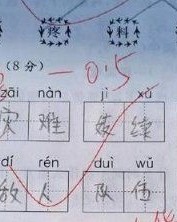 疼 料
（8分） -0.5
zāi nàn jì xù
灾 难 续
dí rén duì wǔ
敌 人 队 伍